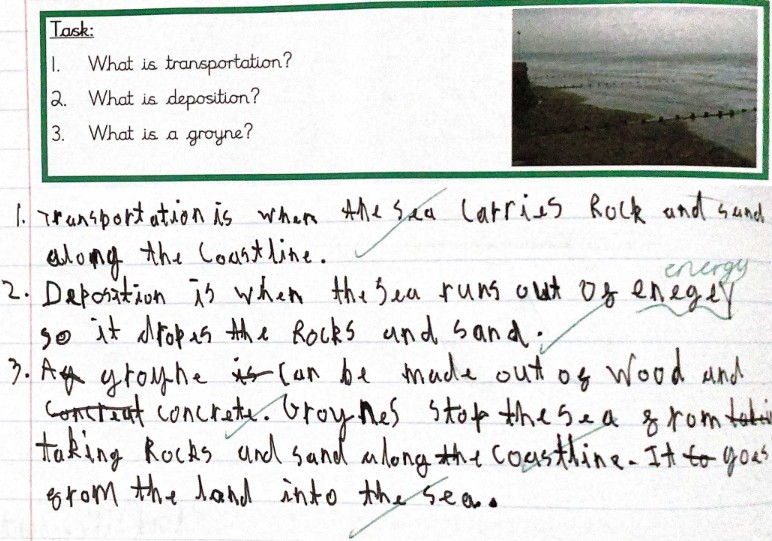 Task:
1. What is transportation?
2. What is deposition?
3. What is a groyne?
1. Transportation is when the sea carries Rock and sand
along the Coastline.
energy
2. Deposition is when the sea runs out of enegey
so it dropes the Rocks and sand.
3. A groyne is can be made out of Wood and
concrete. Groynes stop the sea from
taking Rocks and sand along the coastline. It to goes
from the land into the sea.